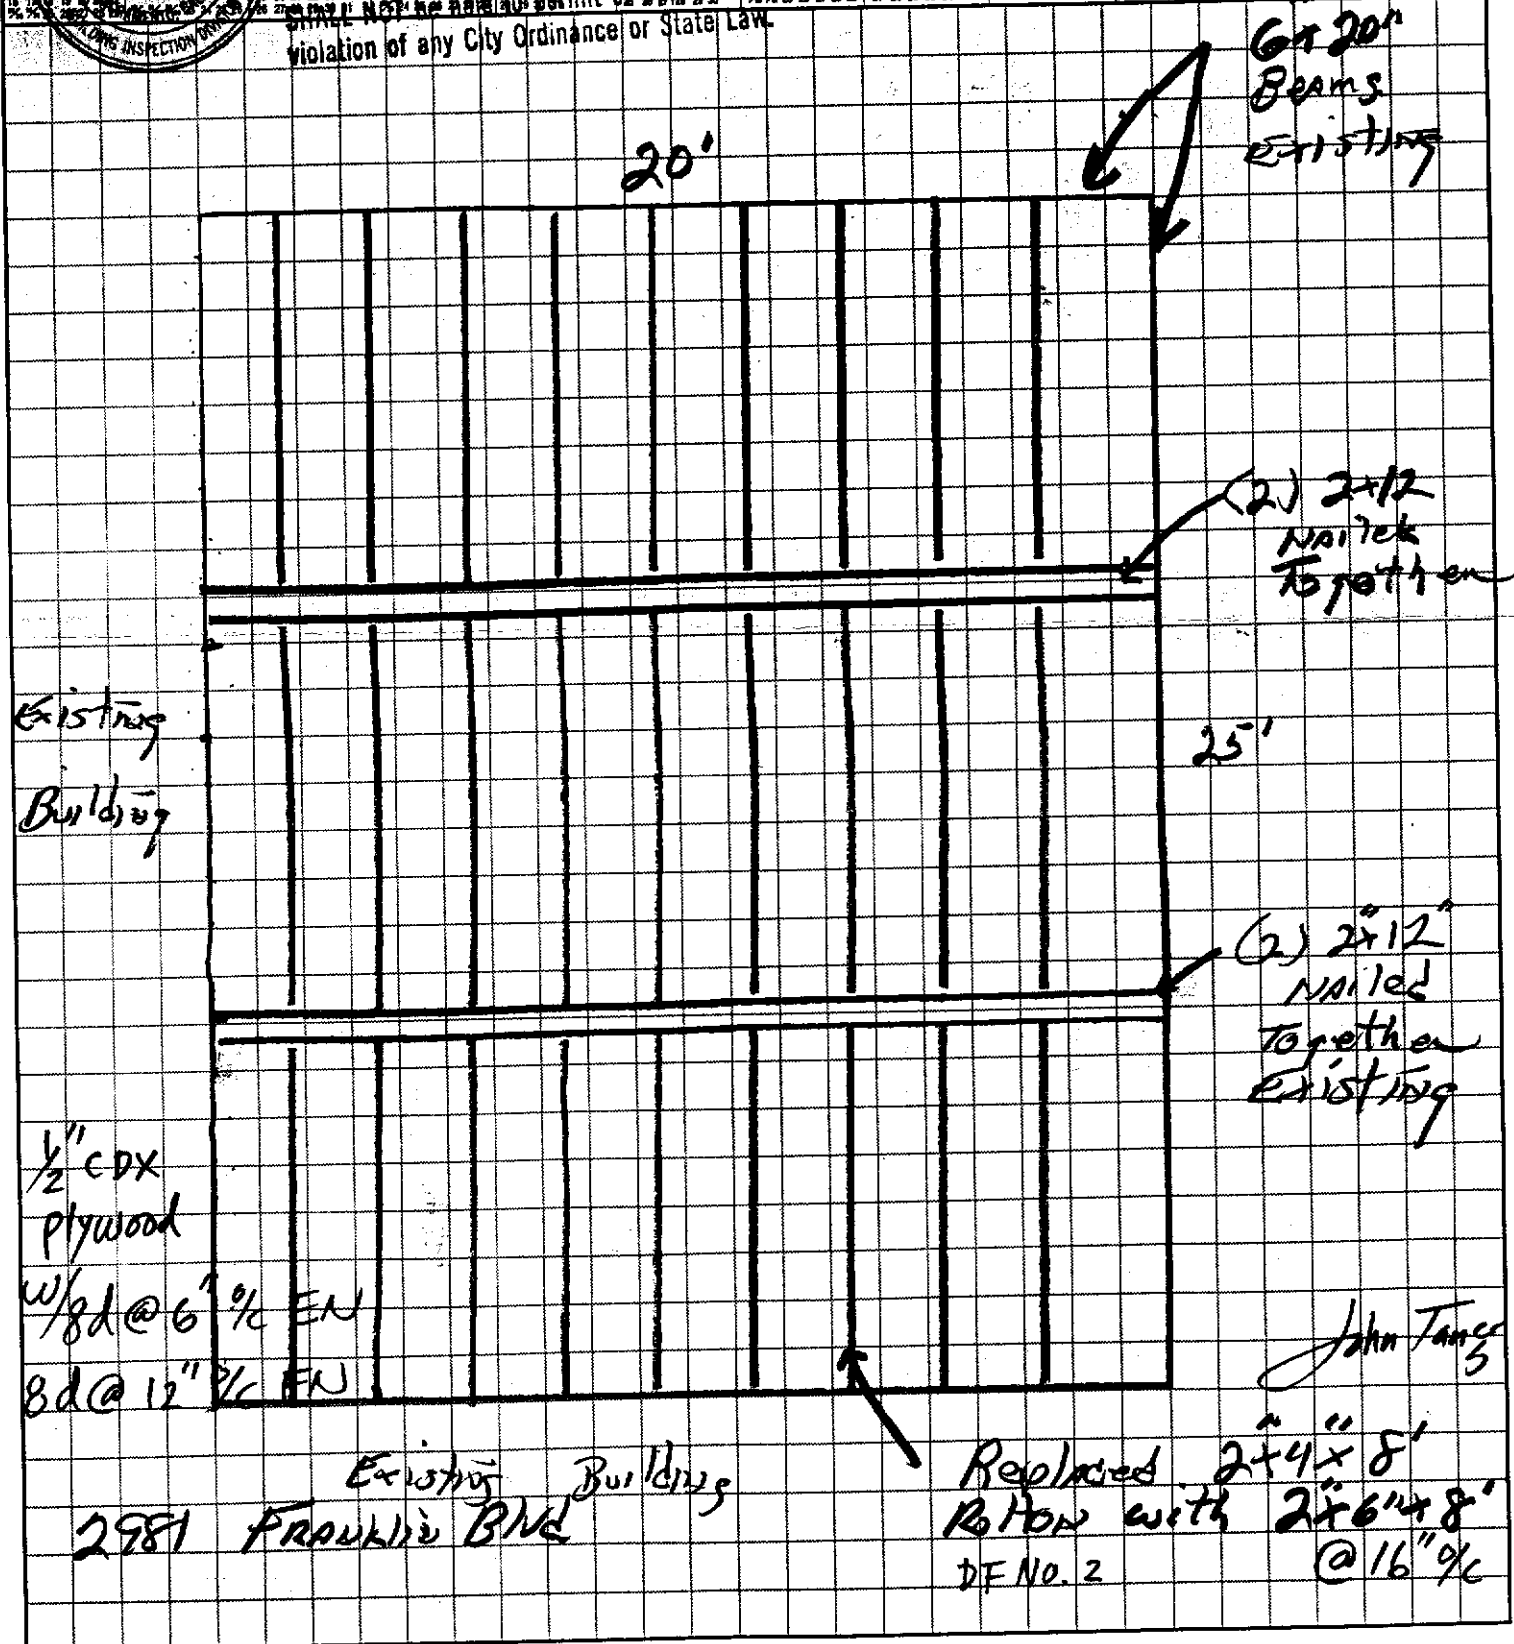 BUILDING INSPECTION DIVISION
SHALL NOT be held to permit
violation of any City Ordinance or State Law.
6x20"
Beams
Existing
20'
(2) 2x12
Nailed
Together
Existing
Building
25'
(2) 2"x12"
Nailed
Together
Existing
1/2" CDX
plywood
w/8d @ 6" o/c EN
8d @ 12" o/c EN
John Tang
Existing Building
2981 Franklin Blvd
Replaced 2"x4"x8'
Rotton with 2"x6"x8'
@ 16" o/c
DF NO. 2